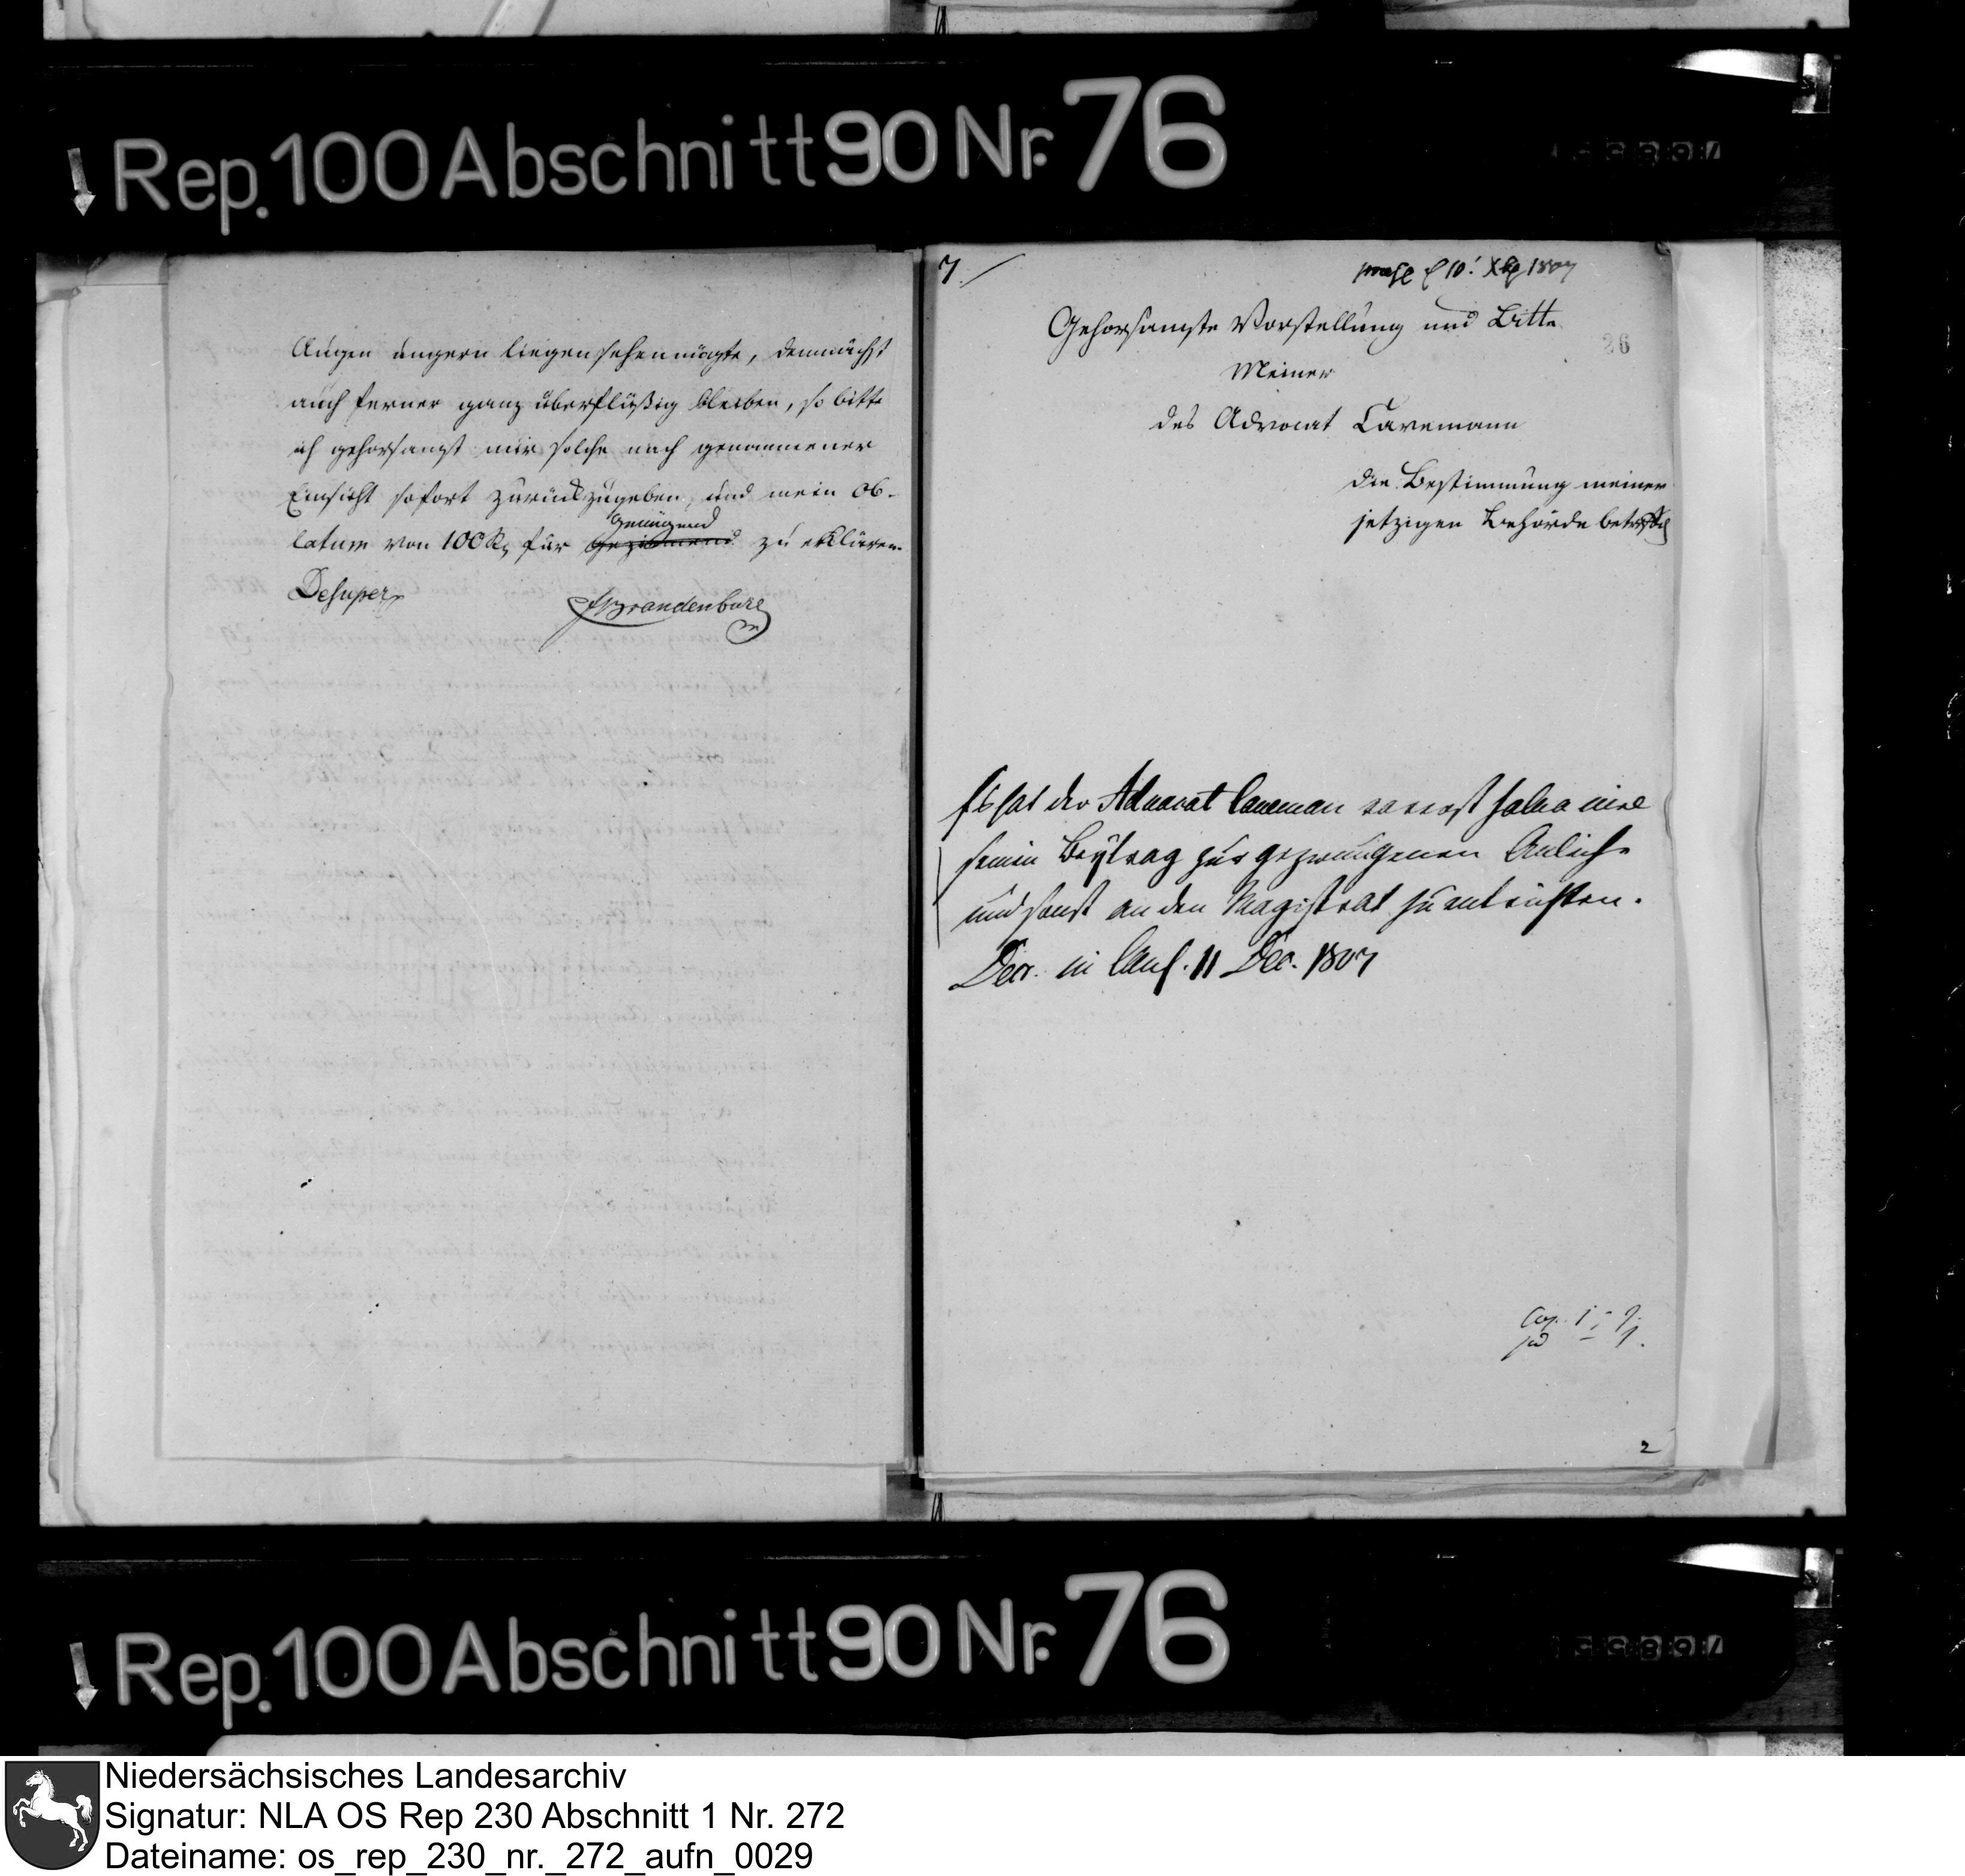 Rep. 100 Abschnitt 90 Nr. 76
Augen ungern liegen sehen mögte, demnächst
auch ferner ganz überflüßig bleiben, so bitte
ich gehorsamst mir solche nach genommener
Einsicht sofort zurückzugeben, und mein Ob-
genügend
latum von 100 R, für geziemend zu erklären.
Desuper
Brandenburg
7.
10. Xbr 1807
Gehorsamste Vorstellung und Bitte
26
Meiner
des Advocat Cavemann
die Bestimmung meiner
jetzigen Behörde betreffend
Es hat der Advocat Caveman
seinen Beytrag zur gezwungenen Anleihe
und sonst an den Magistrat zu entrichten.
Decr. in Cons. 11 Dec. 1807
Cop.
2
Rep. 100 Abschnitt 90 Nr. 76
Niedersächsisches Landesarchiv
Signatur: NLA OS Rep 230 Abschnitt 1 Nr. 272
Dateiname: os_rep_230_nr._272_aufn_0029